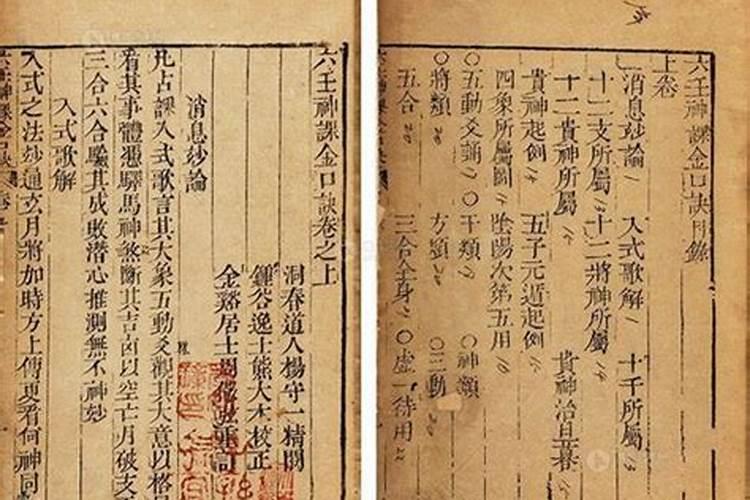 六壬神課金口訣目錄
上卷
消息玅論 一 入式歌解 一 十干所屬
十二支所屬 十二將神所屬
十二貴神所屬 貴神治旦暮
貴神起例 五子元遁起例
四象所屬圖 陰陽次第五用
○五動爻誦 ○干類 ○神類
○將類 方類 ○三動
五合 三合全身 ○虛一待用
六壬神課金口訣卷之上
洞春道人楊守一精閱
鍾谷逸士熊大木校正
金谿居士周重訂
消息玅論
凡占課入式歌言其大象五動爻觀其大意以格
看其事體憑驛馬神煞斷其吉凶以空亡月破支
三合六合驗其成敗潜心推測無不神玅
入式歌解
入式之法玅通玄月將加時方上傳更看何神同